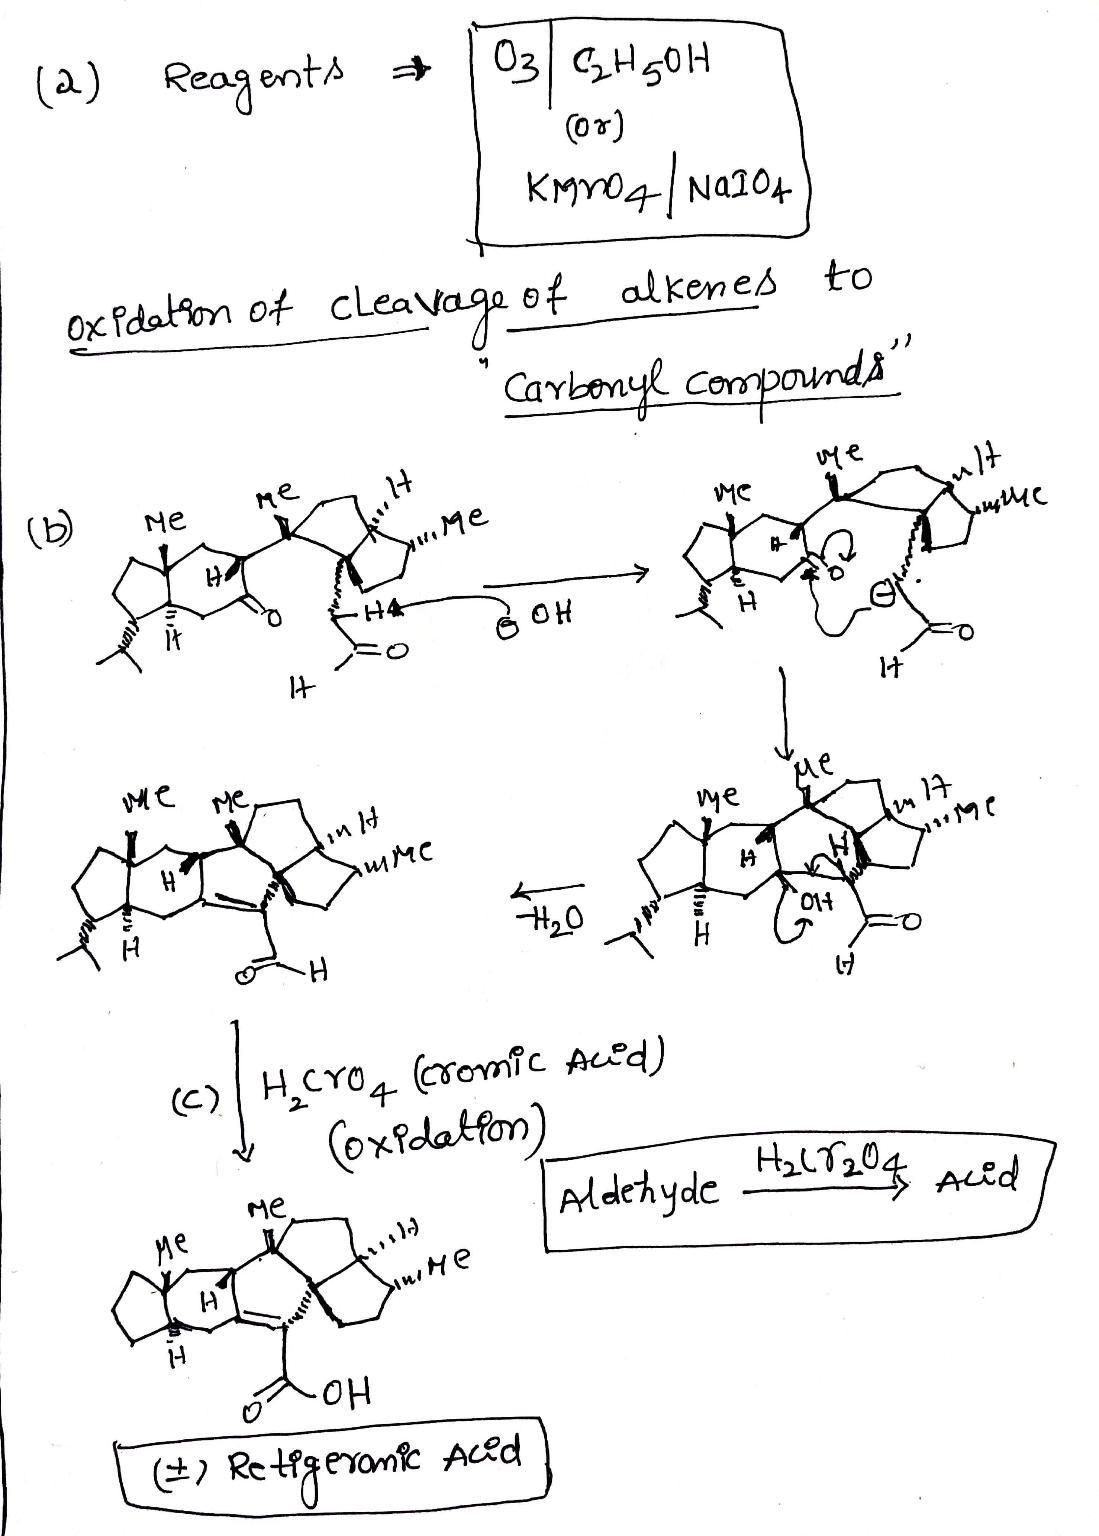 (a) Reagents ⇒ O3 | C2H5OH
(or)
KMnO4 | NaIO4
oxidation of cleavage of alkenes to
"Carbonyl compounds"
(b) Me Me H Me H H O H O H ⊖ OH
Me Me H Me H H O ⊖ O H
Me Me H Me H H H OH O H
-H2O
Me Me H Me H H O H
(c) H2CrO4 (cromic Acid)
(oxidation)
Aldehyde H2Cr2O4 → Acid
Me Me H Me H H O OH
(±) Retigeromic Acid